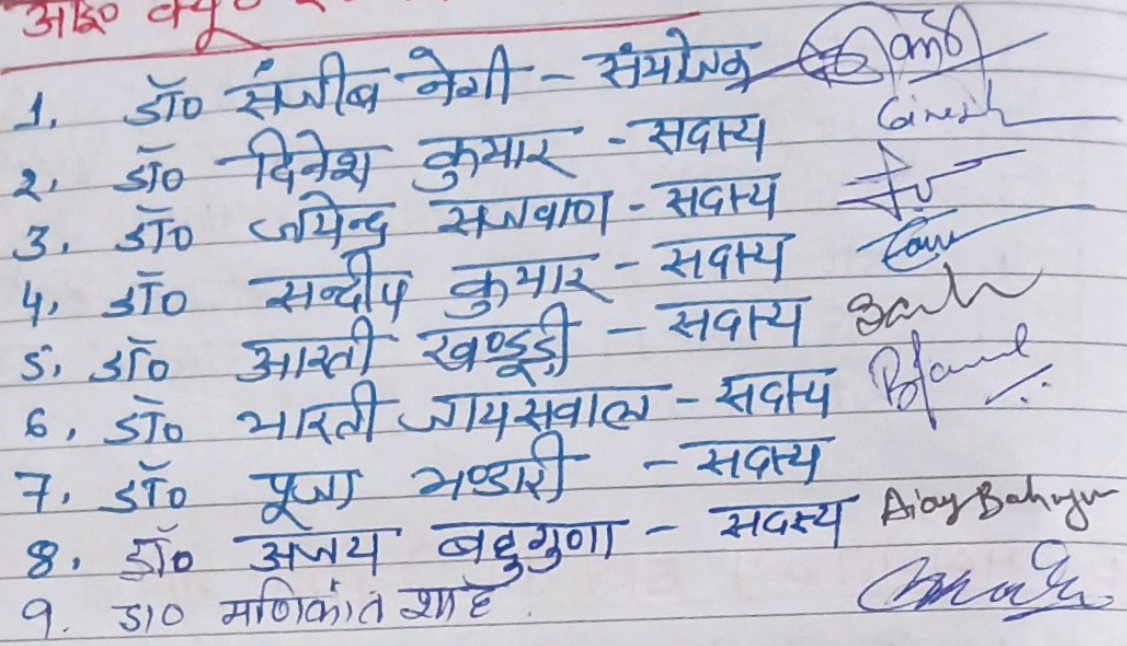 आइ० क्यू०
1. डॉ० संजीब नेगी - संयोजक
2. डॉ० दिनेश कुमार - सदस्य Ginesh
3. डॉ० जयेन्द्र सजवाण - सदस्य
4. डॉ० सन्दीप कुमार - सदस्य
5. डॉ० आरती खण्डूड़ी - सदस्य
6. डॉ० भारती जायसवाल - सदस्य
7. डॉ० पूजा भण्डारी - सदस्य
8. डॉ० अजय बहुगुणा - सदस्य Ajay Bahugun
9. डा० मणिकांत शाह